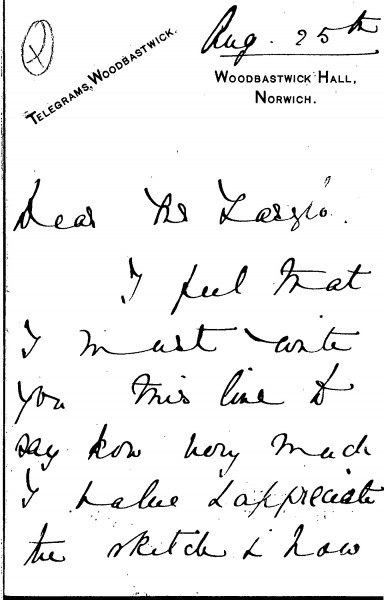 Aug. 25th
Telegrams, Woodbastwick.
Woodbastwick Hall,
Norwich.
Dear Mr Laszlo.
I feel that
I must write
you this line to
say how very much
I value & appreciate
the sketch & how